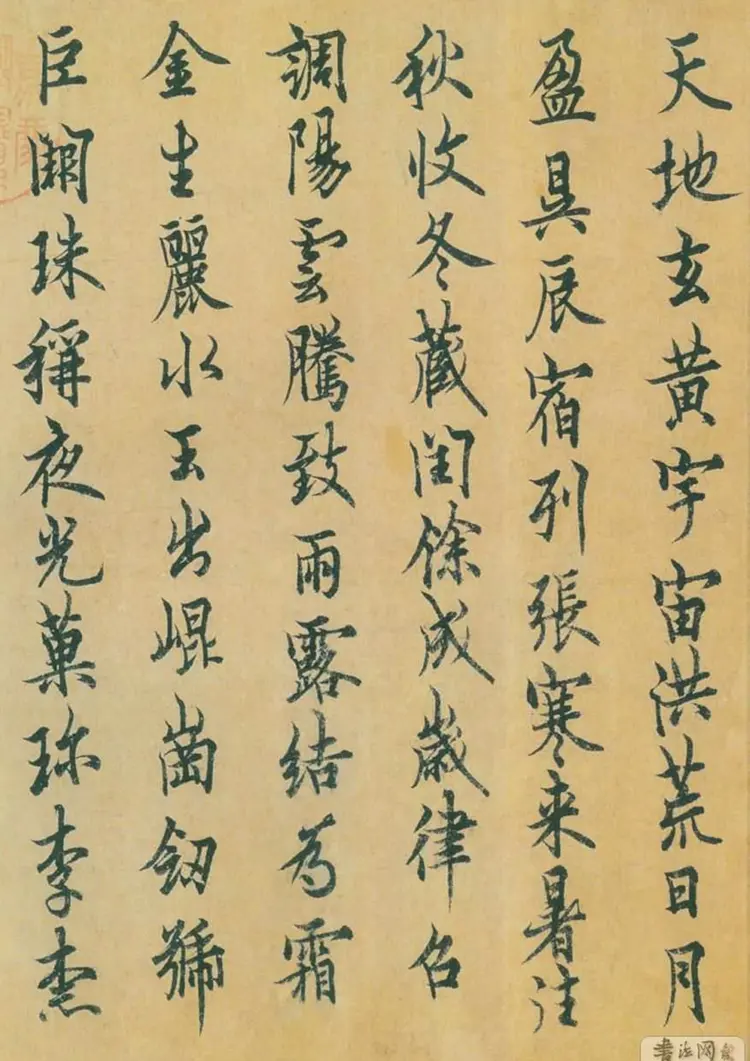 天地玄黃宇宙洪荒日月
盈昃辰宿列張寒来暑往
秋收冬蔵閏餘成歲律召
調陽雲騰致雨露結為霜
金生麗水玉出崐崗劔號
巨闕珠稱夜光菓珎李柰
書法网